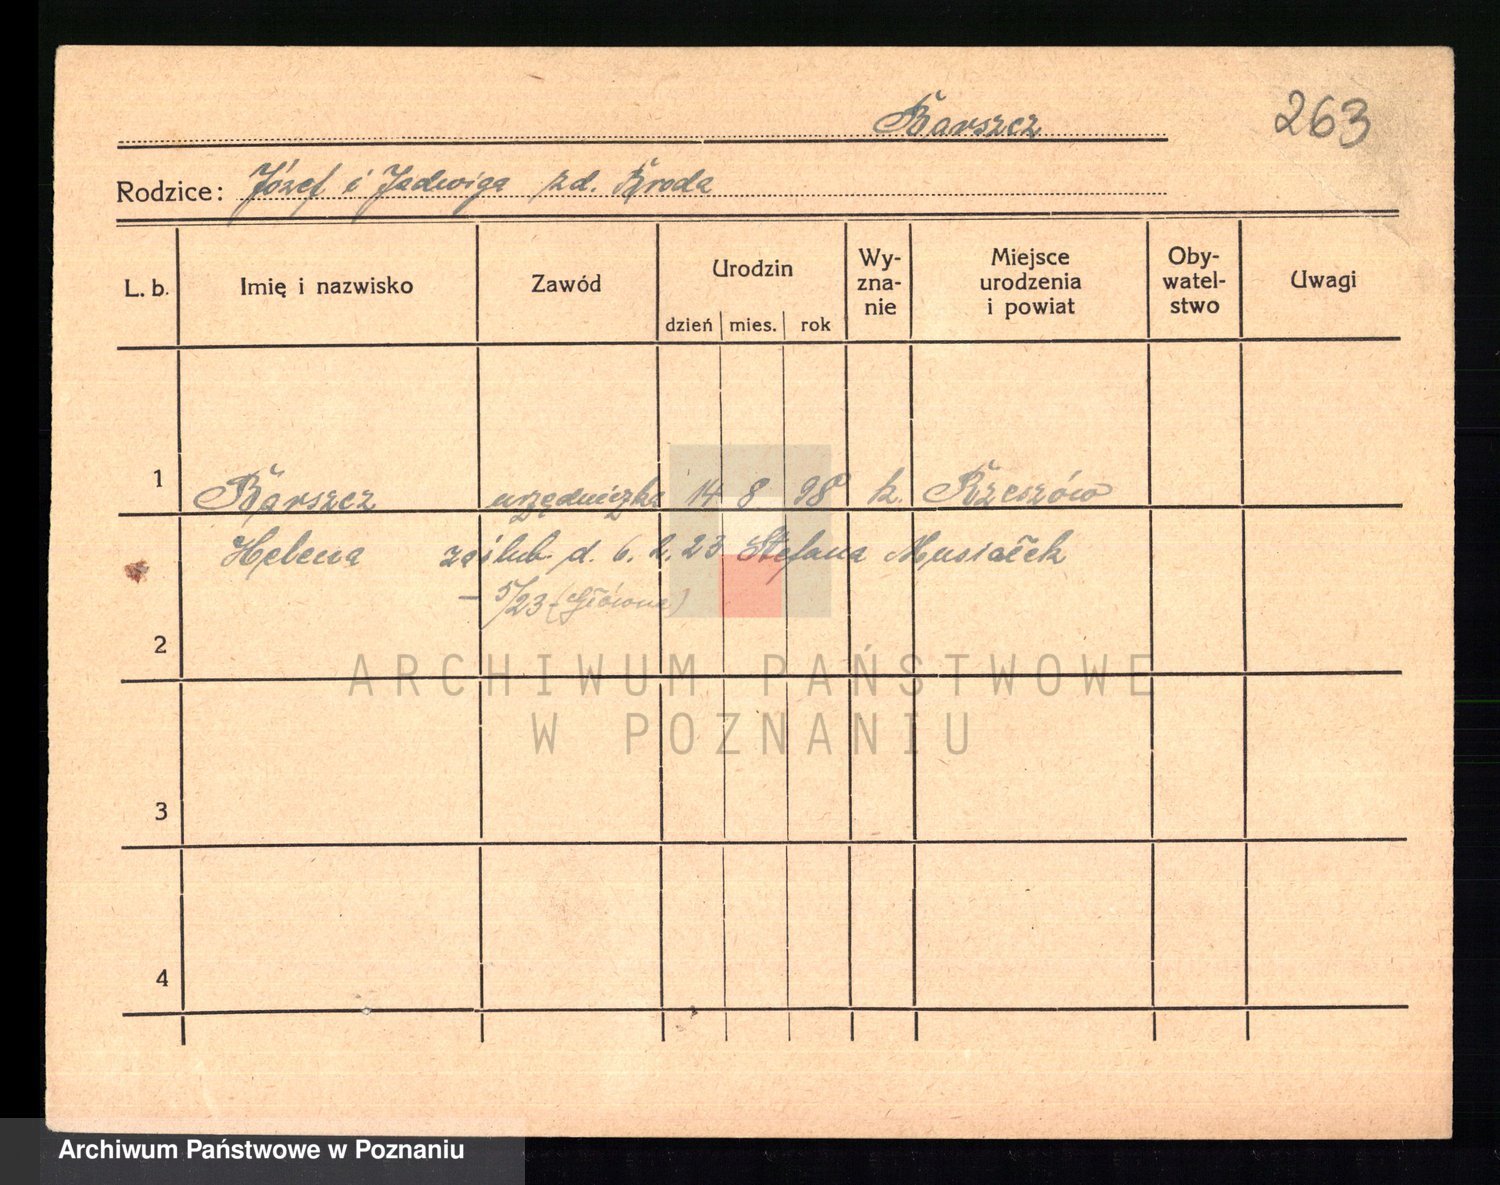 Barszcz 263
Rodzice: Józef i Jadwiga zd. Broda
L. b. Imię i nazwisko Zawód Urodzin Wy-zna-nie Miejsce urodzenia i powiat Oby-watel-stwo Uwagi
dzień mies. rok
1 Barszcz urzędniczka 14 8 98 k. Rzeszów
Helena zaślub. d. 6. 2. 23 Stefana Musiałek
– 5/23 – (Główna)
2
ARCHIWUM PAŃSTWOWE
W POZNANIU
3
4
Archiwum Państwowe w Poznaniu